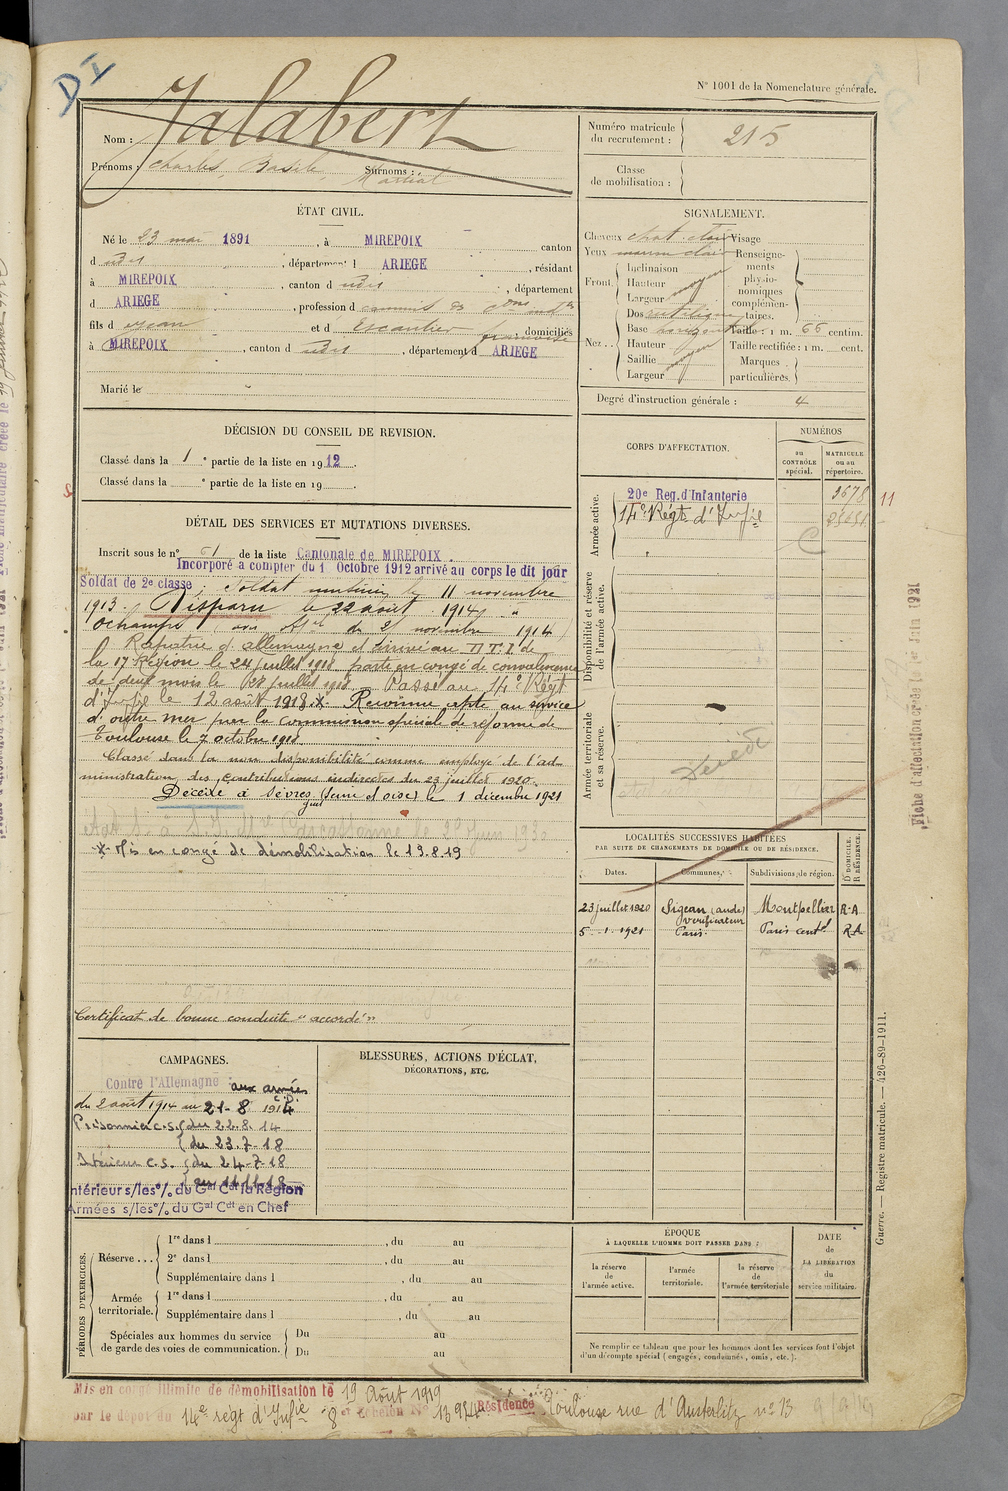 D I
N° 1001 de la Nomenclature générale.
Nom : Jalabert
Prénoms : Charles, Basile, Martial Surnoms :
Numéro matricule du recrutement : 215
Classe de mobilisation :
ÉTAT CIVIL.
Né le 23 mai 1891, à MIREPOIX canton
d udit, département d ARIEGE, résidant
à MIREPOIX, canton d udit, département
d ARIEGE, profession d commis des
fils d Jean et d Escautier françoise, domiciliés
à MIREPOIX, canton d udit, département d ARIEGE
Marié le
SIGNALEMENT.
Cheveux chat. clair Visage
Yeux marron clair
Front. Inclinaison
Hauteur moyen
Largeur
Nez.. Dos rectiligne
Base horizont
Hauteur moyen
Saillie
Largeur
Renseignements physionomiques complémentaires.
Taille : 1 m. 66 centim.
Taille rectifiée : 1 m. cent.
Marques particulières.
Degré d'instruction générale : 4
DÉCISION DU CONSEIL DE REVISION.
Classé dans la 1e partie de la liste en 1912.
Classé dans la e partie de la liste en 19 .
CORPS D'AFFECTATION.
NUMÉROS
au CONTRÔLE spécial.
MATRICULE ou au répertoire.
Armée active.
20e Reg. d'Infanterie
14e Régt d'Infie
11
Disponibilité et réserve de l'armée active.
Armée territoriale et sa réserve.
Décédé
DÉTAIL DES SERVICES ET MUTATIONS DIVERSES.
Inscrit sous le n° 61 de la liste Cantonale de MIREPOIX.
Incorporé a compter du 1 Octobre 1912 arrivé au corps le dit jour
Soldat de 2e classe; Soldat musicien le 11 novembre
1913. Disparu le 22 août 1914 à
Ochamps (avis Mel du 21 novembre 1914)
Rapatrié d'allemagne et arrivé au D.T.I de
la 17 Région le 24 juillet 1918, parti en congé de convalescence
de deux mois le 27 juillet 1918. Passé au 14e Régt
d'Infie le 12 août 1918 x. Reconnu apte au service
d'outre mer par la commission spéciale de réforme de
Toulouse le 7 octobre 1918
Classé dans la non disponibilité comme employé de l'ad-
ministration des contributions indirectes du 23 juillet 1920.
Décédé à Sèvres (Seine et oise) le 1 décembre 1921
x Mis en congé de démobilisation le 19.8.19
Certificat de bonne conduite "accordé"
LOCALITÉS SUCCESSIVES HABITÉES
PAR SUITE DE CHANGEMENTS DE DOMICILE OU DE RÉSIDENCE.
Dates. Communes. Subdivisions de région. D DOMICILE. R RÉSIDENCE.
23 juillet 1920 Sigean (aude) Montpellier R-A
vérificateur
5 . 1. 1921 Paris. Paris centl R.A
CAMPAGNES.
Contre l'Allemagne aux armées
du 2 août 1914 au 21-8 1914 C.D.
Prisonnier c.s. du 22.8.14
du 23.7-18
Intérieur c.s. du 24-7-18
au 11.11.18
Intérieur s/les o/. du Gal Cdt la Région
Armées s/les o/. du Gal Cdt en Chef
BLESSURES, ACTIONS D'ÉCLAT,
DÉCORATIONS, ETC.
PÉRIODES D'EXERCICES.
Réserve...
1re dans l , du au
2e dans l , du au
Supplémentaire dans l , du au
Armée territoriale.
1re dans l , du au
Supplémentaire dans l , du au
Spéciales aux hommes du service de garde des voies de communication.
Du au
Du au
ÉPOQUE
À LAQUELLE L'HOMME DOIT PASSER DANS :
la réserve de l'armée active.
l'armée territoriale.
la réserve de l'armée territoriale
DATE DE LA LIBÉRATION du service militaire.
Ne remplir ce tableau que pour les hommes dont les services font l'objet
d'un décompte spécial (engagés, condamnés, omis, etc.).
Mis en congé illimité de démobilisation le 19 Août 1919
par le dépôt du 14e régt d'Infie 8e Echelon N° Résidence Toulouse rue d'Austerlitz n° 13
Fiche d'affectation créée le 1er Juin 1921
Guerre. — Registre matricule. — 426-89-1911.